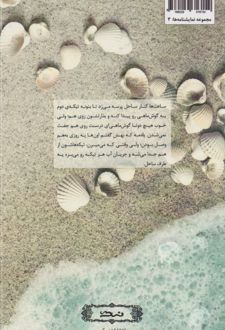 مجموعه نمایشنامه‌ها: ۳
ساعت‌ها کنار ساحل پرسه می‌زد تا بتونه تیکه‌ی دوم
یه گوش‌ماهی رو پیدا کنه و بذارتشون روی هم؛ ولی
خب هیچ دوتا گوش‌ماهی‌ای درست روی هم جفت
نمی‌شدن. یادمه که بهش گفتم اون‌ها یه روزی به‌هم
وصل بودن؛ ولی وقتی که می‌میرن، تیکه‌هاشون از
هم جدا می‌شه و جریان آب هر تیکه رو می‌بره یه
طرف ساحل.